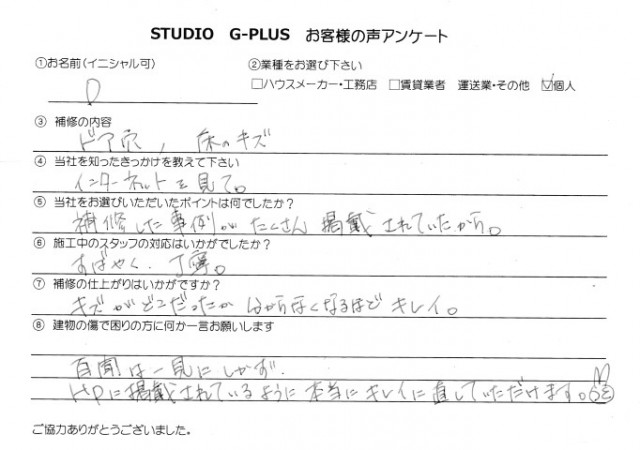 STUDIO G-PLUS お客様の声アンケート
①お名前(イニシャル可) ②業種をお選び下さい
□ハウスメーカー・工務店 □賃貸業者 運送業・その他 ☑個人
D
③ 補修の内容
ドア穴, 床のキズ
④ 当社を知ったきっかけを教えて下さい
インターネットを見て。
⑤ 当社をお選びいただいたポイントは何でしたか?
補修した事例がたくさん掲載されていたから。
⑥ 施工中のスタッフの対応はいかがでしたか?
すばやく、丁寧。
⑦ 補修の仕上がりはいかがですか?
キズがどこだったか分からなくなるほどキレイ。
⑧ 建物の傷で困りの方に何か一言お願いします
百聞は一見にしかず.
HPに掲載されているように本当にキレイに直していただけます。
ご協力ありがとうございました。